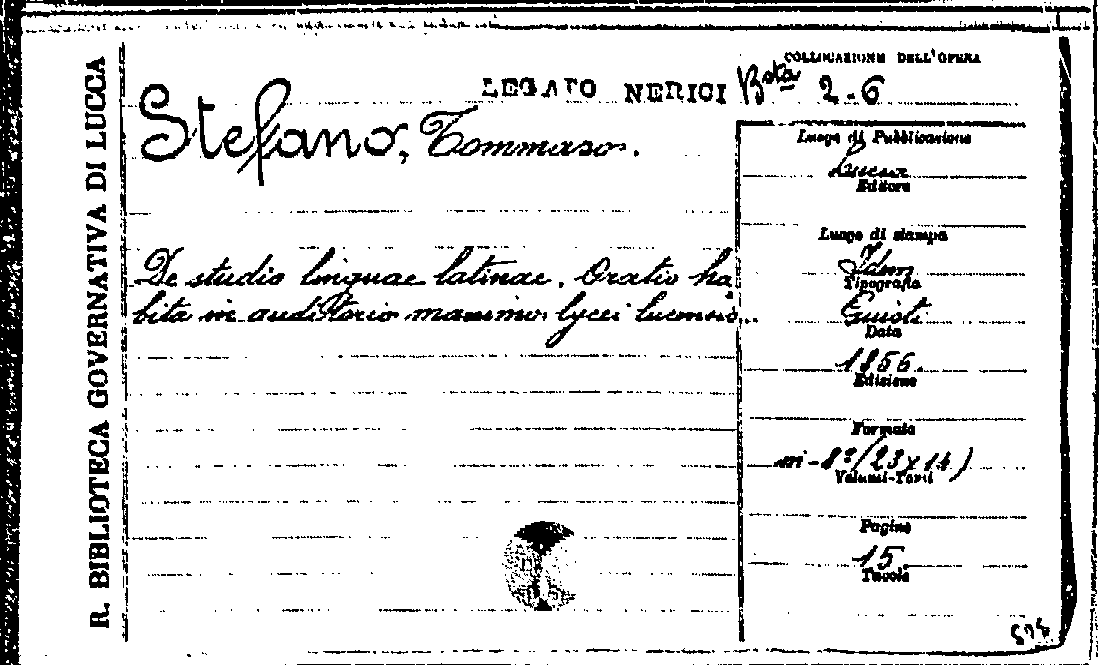 R. BIBLIOTECA GOVERNATIVA DI LUCCA
LEGATO NERICI
COLLOCAZIONE DELL'OPERA
Bsta 2-6
Stefano, Tommaso.
De studio linguae latinae. Oratio ha
bita in auditorio maximo lycei lucensis.
Luogo di Pubblicazione
Lucca
Editore
Luogo di stampa
Idem
Tipografia
Giusti
Data
1856.
Edizione
Formato
in-8º (23x14)
Volumi-Tomi
Pagine
15.
Tavole